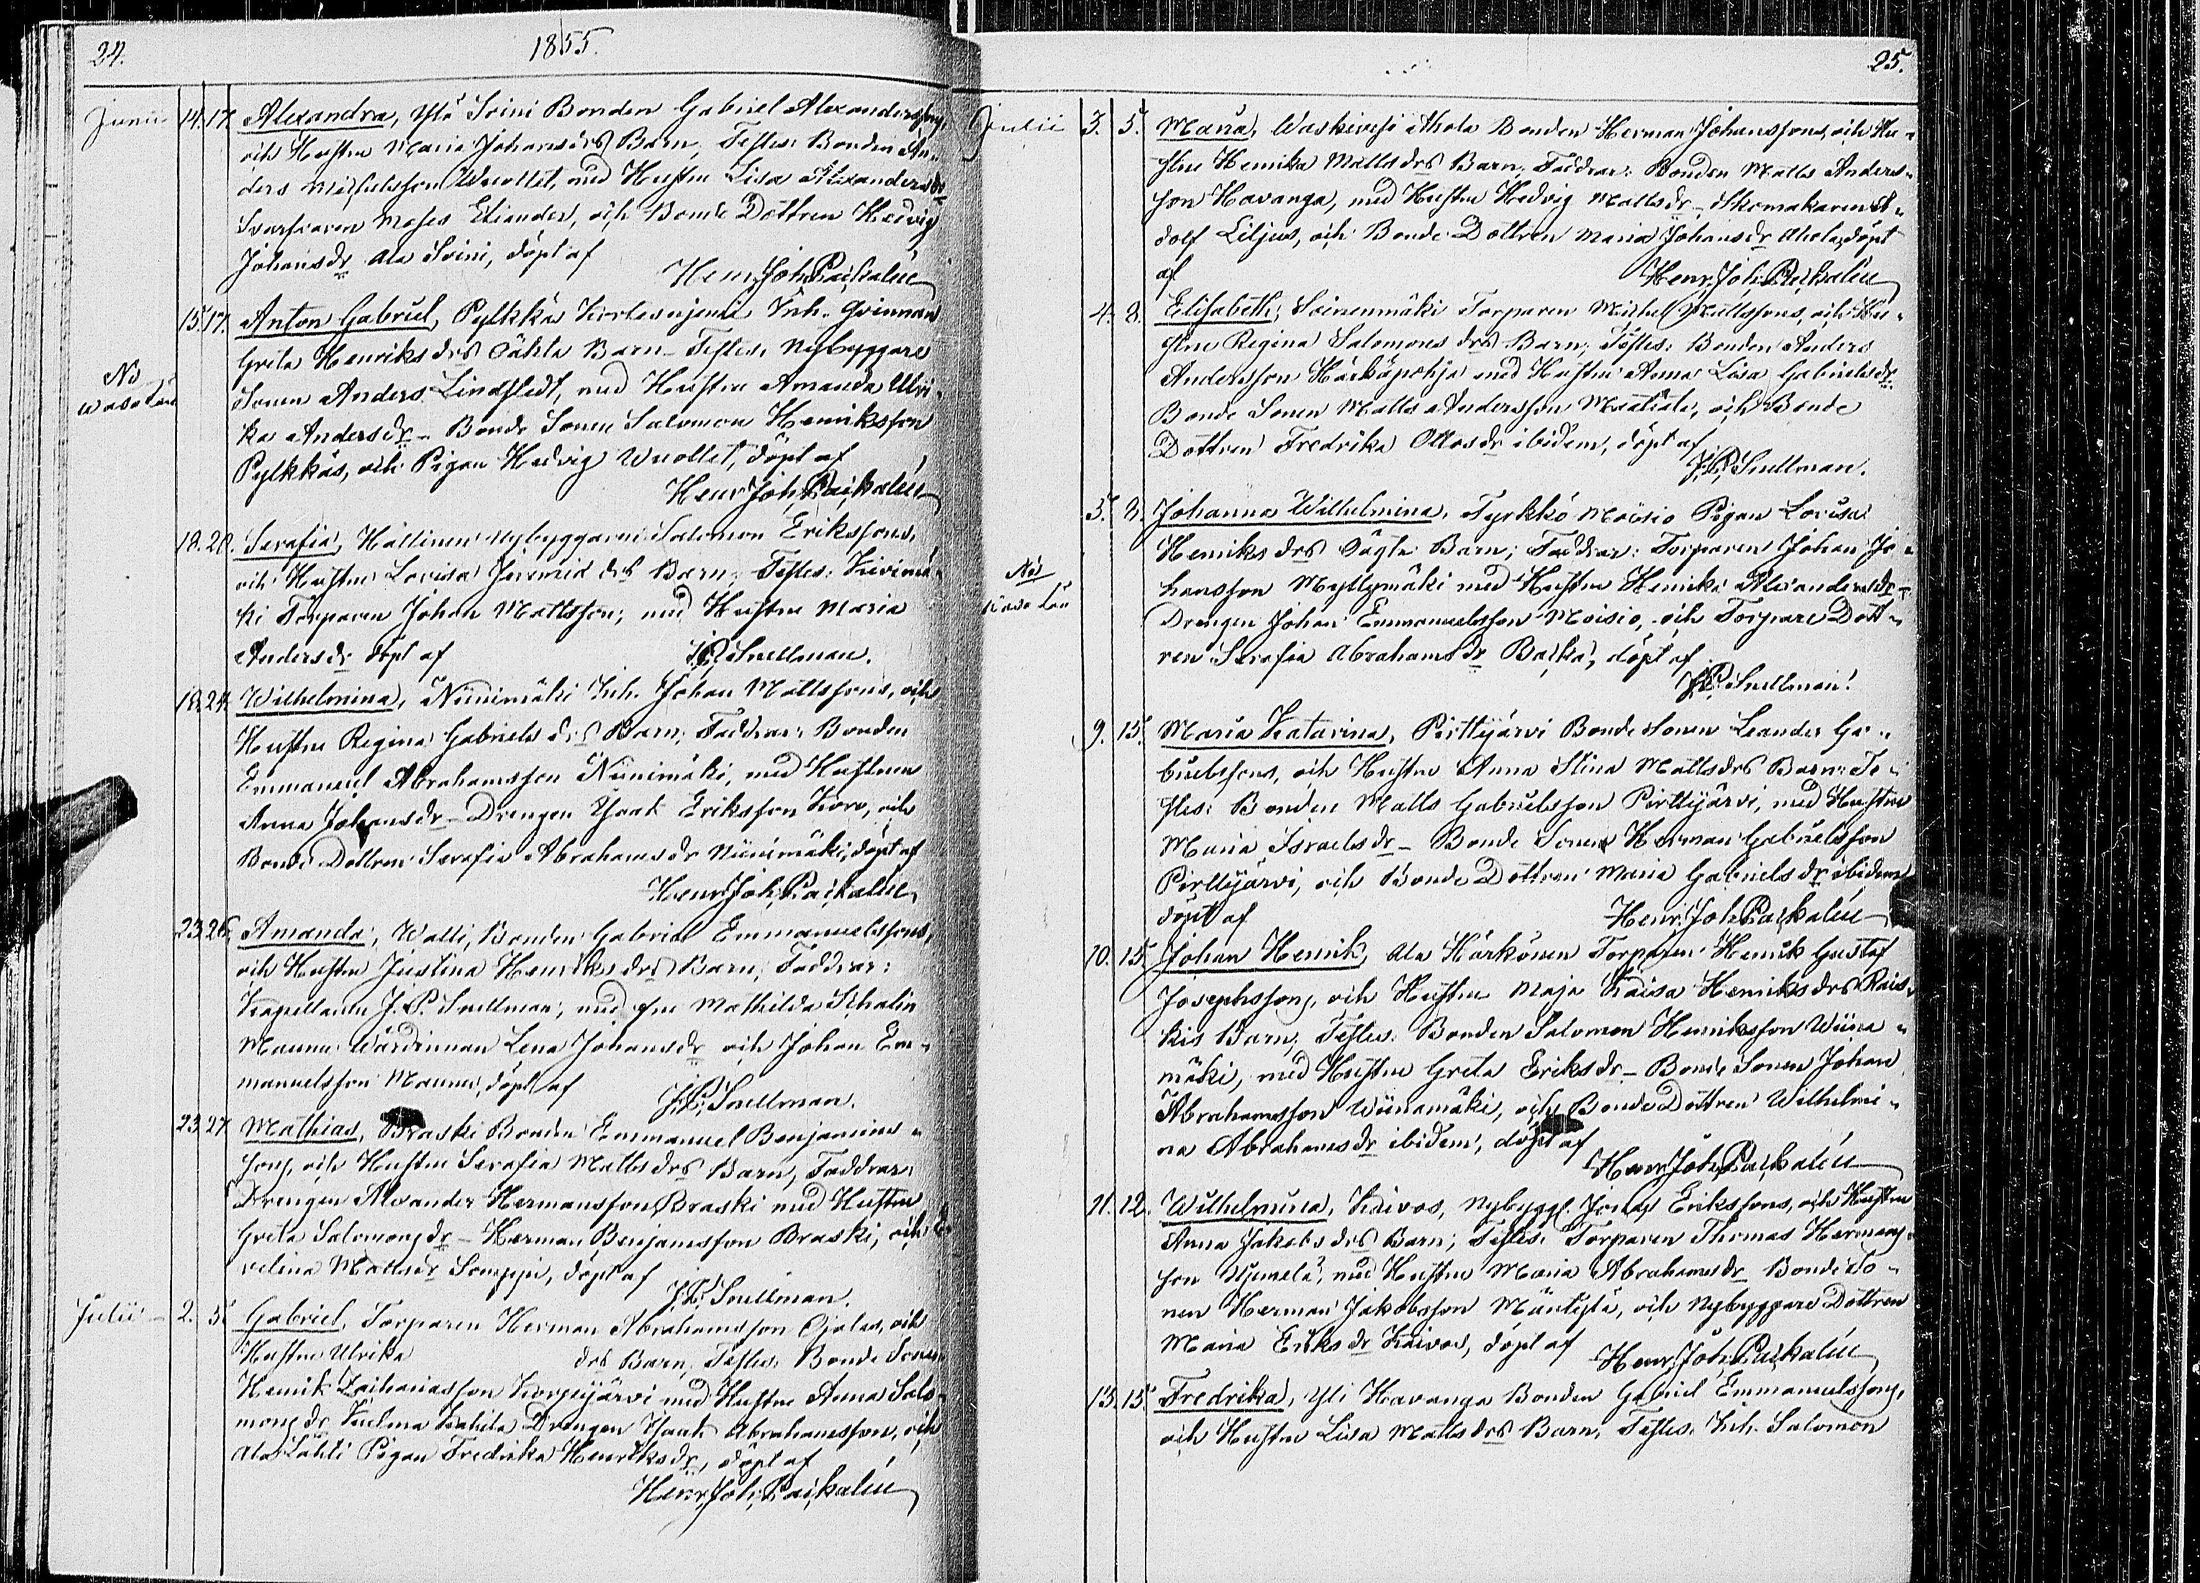 24.
1855.
Junii 14. 17. Alexandra, Yli Soini Bonden Gabriel Alexanderssons,
och Hustru Maria Johansdrs Barn, Testes: Bonden An-
ders Michelsson Wuollet, med Hustru Lisa Alexandersdr
Svarfvaren Moses Eliander, och Bonde Dottren Hedvig
Johansdr Ala Soini, döpt af
Henr. Joh. Pasalén
15. 17. Anton Gabriel, Pylkkäs Inh. Qvinnan
Greta Henriksdrs Oäkta Barn – Testes, Nybyggare
No
Wasa Län
Sonen Anders Lindstedt, med Hustru Amanda Ulri-
ka Andersdr – Bonde Sonen Salomon Henriksson
Pylkkäs, och Pigan Hedvig Wuollet, döpt af
Henr. Joh.
18. 20. Serafia, Hallinen Nybyggaren Salomon Erikssons,
och Hustru Lovisa Jeremid drs Barn, Testes: Kivimä-
ki Torparen Johan Mattsson, med Hustru Maria
Andersdr döpt af
J. P. Snellman.
18. 24. Wilhelmina, Niinimäki Inh. Johan Mattssons, och
Hustru Regina Gabrielsdrs Barn; Faddrar: Bonden
Emmanuel Abrahamsson Niinimäki, med Hustrun
Anna Johansdr – Drengen Isaak Eriksson Koro, och
Bonde Dottren Serafia Abrahamsdr Niinimäki, döpt af
Henr. Joh.
23. 26. Amanda, Walli, Bonden Gabriel Emmanuelssons,
och Hustru Justina Henriksdrs Barn; Faddrar:
Kapellanen J. P. Snellman, med Fru Mathilda Schalin
Maunu Wärdinnan Lena Johansdr och Johan Em-
manuelsson Maunu, döpt af
J. P. Snellman.
23. 27. Mathias, Braski Bonden Emmanuel Benjamins-
sons, och Hustru Serafia Mattsdrs Barn, Faddrar:
Drengen Alexander Hermansson Braski med Hustru
Greta Salomonsdr – Herman Benjamsson Braski, och E-
velina Mattsdr Somppi, döpt af
J. P. Snellman.
Julii – 2. 5. Gabriel, Torparen Herman Abrahamsson Ojalas, och
Hustru Ulrika drs Barn, Testes: Bonde Sonen
Henrik Zachariasson Korpijärvi med Hustru Anna Salo-
monsdr Drengen Isaak Abrahamsson, och
Ala Lähti Pigan Fredrika Henriksdr, döpt af
Henr. Joh.
25.
Julii 3. 5. Maria, Bonden Herman Johanssons, och Hu-
stru Henrika Mattsdrs Barn, Faddrar: Bonden Matts Anders-
son Havanga, med Hustru Hedvig Mattsdr – Skomakaren A-
dolf Liljus, och Bonde Dottren Maria Johansdr Ahola, döpt
af
Henr. Joh.
4. 8. Elisabeth, Torparen Michel Mattssons, och Hu-
stru Regina Salomons drs Barn; Testes: Bonden Anders
Andersson Härkäpohja med Hustru Anna Lisa Gabrielsdr
Bonde Sonen Matts Andersson Määttälä, och Bonde
Dottren Fredrika Ottosdr ibidem, döpt af
J. P. Snellman.
5. 8. Johanna Wilhelmina, Tyrkkö Moisio Pigan Lovisa
Henriksdrs Oägta Barn; Faddrar: Torparen Johan Jo-
No
Wasa Län
hansson Myllymäki med Hustru Henrika Alexandersdr –
Drengen Johan Emmanuelsson Moisio, och Torpare Dott-
ren Serafia Abrahamsdr Backa, döpt af
J. P. Snellman.
9. 15. Maria Katarina, Pirttijärvi Bonde Sonen Leander Ga-
brielssons, och Hustru Anna Stina Mattsdrs Barn: Te-
stes: Bonden Matts Gabrielsson Pirttijärvi, med Hustru
Maria Israelsdr – Bonde Sonen Herman Gabrielsson
Pirttijärvi, och Bonde Dottren Maria Gabrielsdr ibidem
döpt af
Henr. Joh.
10. 15. Johan Henrik, Ala Härkönen Torparen Henrik Gustaf
Josephssons, och Hustru Maja Kaisa Henriksdrs Rais-
kis Barn, Testes: Bonden Salomon Henriksson Wiina-
mäki, med Hustru Greta Eriksdr – Bonde Sonen Johan
Abrahamsson Wiinamäki, och Bonde Dottren Wilhelmi-
na Abrahamsdr ibidem, döpt af
Henr. Joh.
11. 12. Wilhelmina, Kaivos, Nybygg. Jonas Erikssons, och Hustru
Anna Jakobsdrs Barn; Testes: Torparen Thomas Hermans-
son med Hustru Maria Abrahamsdr Bonde So-
nen Herman Jakobsson Mäntylä, och Nybyggare Dottren
Maria Eriksdr Kaivos, döpt af
Henr. Joh.
13. 15. Fredrika, Yli Havanga Bonden Gabriel Emmanuelssons,
och Hustru Lisa Mattsdrs Barn, Testes: Inh. Salomon